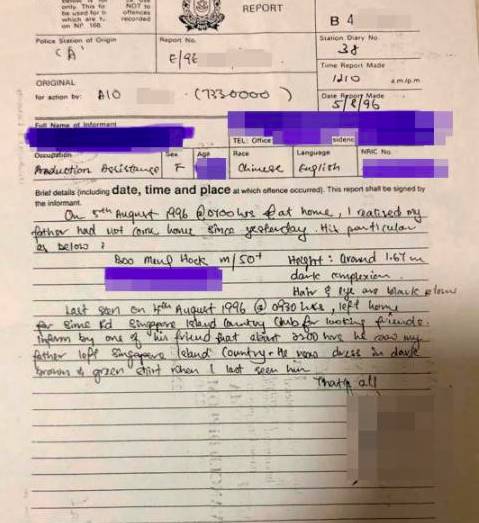 only. This fo
NOT to
be used for
offences
which are
recorded
on NP 168.
REPORT
B 4
Police Station of Origin
'A'
Report No.
E/96
Station Diary No.
38
Time Report Made
1210 a.m/p.m
ORIGINAL
for action by: AIO (7330000)
Date Report Made
5/8/96
Full Name of Informant
TEL: Office
Occupation
Sex
Age
Race
Language
NRIC No.
Production Assistance
F
Chinese
English
Brief details (including date, time and place at which offence occurred). This report shall be signed by
the informant.
On 5th August 1996 @ 0700 hrs at home, I realised my
father had not come home since yesterday. His particular
as below :
Boo Meng Hock m/50+
Height : around 1.67m
dark complexion
Hair & eye are black
Last seen on 4th August 1996 @ 0930 hrs, left home
for Sime Rd Singapore Island Country Club for friends.
inform by one of his friend that about 2200 hrs he saw my
father left Singapore Island Country. He was dress in dark
brown & green shirt when I last seen him.
That's all